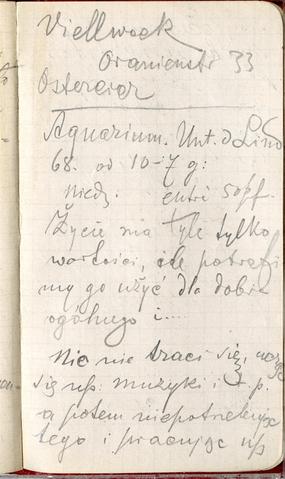 Viellwock
Oranienstr 33
Ostereier
Aquarium. Unt. d Lind
68. od 10-7 g:
niedz. entré 50 pf.
Życie ma tyle tylko
wartości, ile potrafi
my go użyć dla dobra
ogólnego i....
Nic nie traci się, ucząc
się np: muzyki i t. p.
a potem niepotrzebując
tego i pracując np